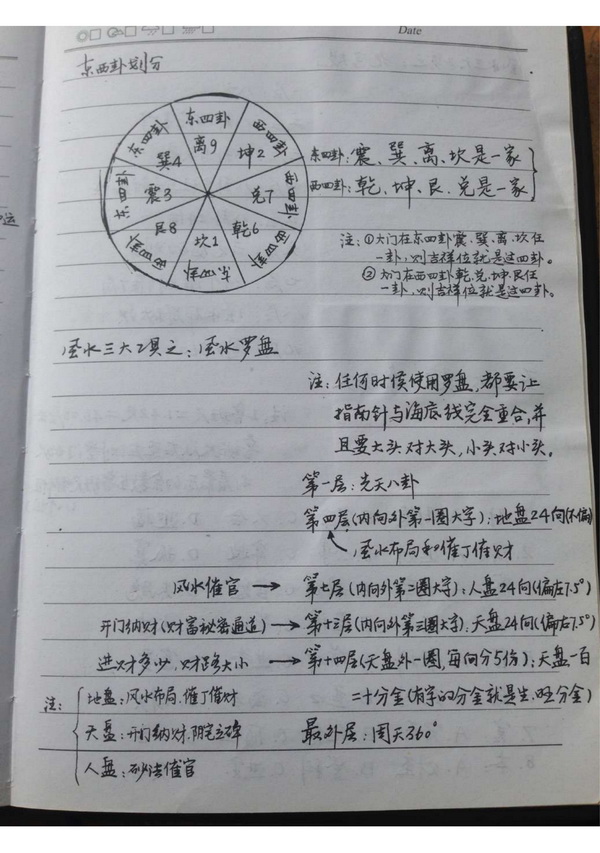 Date
东西卦划分
东四卦
离9
西四卦
坤2
西四卦
兑7
西四卦
乾6
东四卦
坎1
西四卦
艮8
东四卦
震3
东四卦
巽4
东四卦：震、巽、离、坎是一家
西四卦：乾、坤、艮、兑是一家
注：①大门在东四卦震、巽、离、坎任
一卦，则吉祥位就是这四卦。
②大门在西四卦乾、兑、坤、艮任
一卦，则吉祥位就是这四卦。
风水三大工具之：风水罗盘
注：任何时候使用罗盘，都要让
指南针与海底线完全重合，并
且要大头对大头，小头对小头。
第一层：先天八卦
第四层(内向外第一圈大字)：地盘24向(不偏)
风水布局和催丁催财
风水催官 → 第七层(内向外第二圈大字)：人盘24向(偏左7.5°)
开门纳财(财富秘密通道) → 第十三层(内向外第三圈大字)：天盘24向(偏右7.5°)
进财多少，财路大小 → 第十四层(天盘外一圈，每向分5份)：天盘一百
二十分金(有字的分金就是生旺分金)
注：
地盘：风水布局、催丁催财
天盘：开门纳财、阴宅立碑
人盘：砂法催官
最外层：周天360°